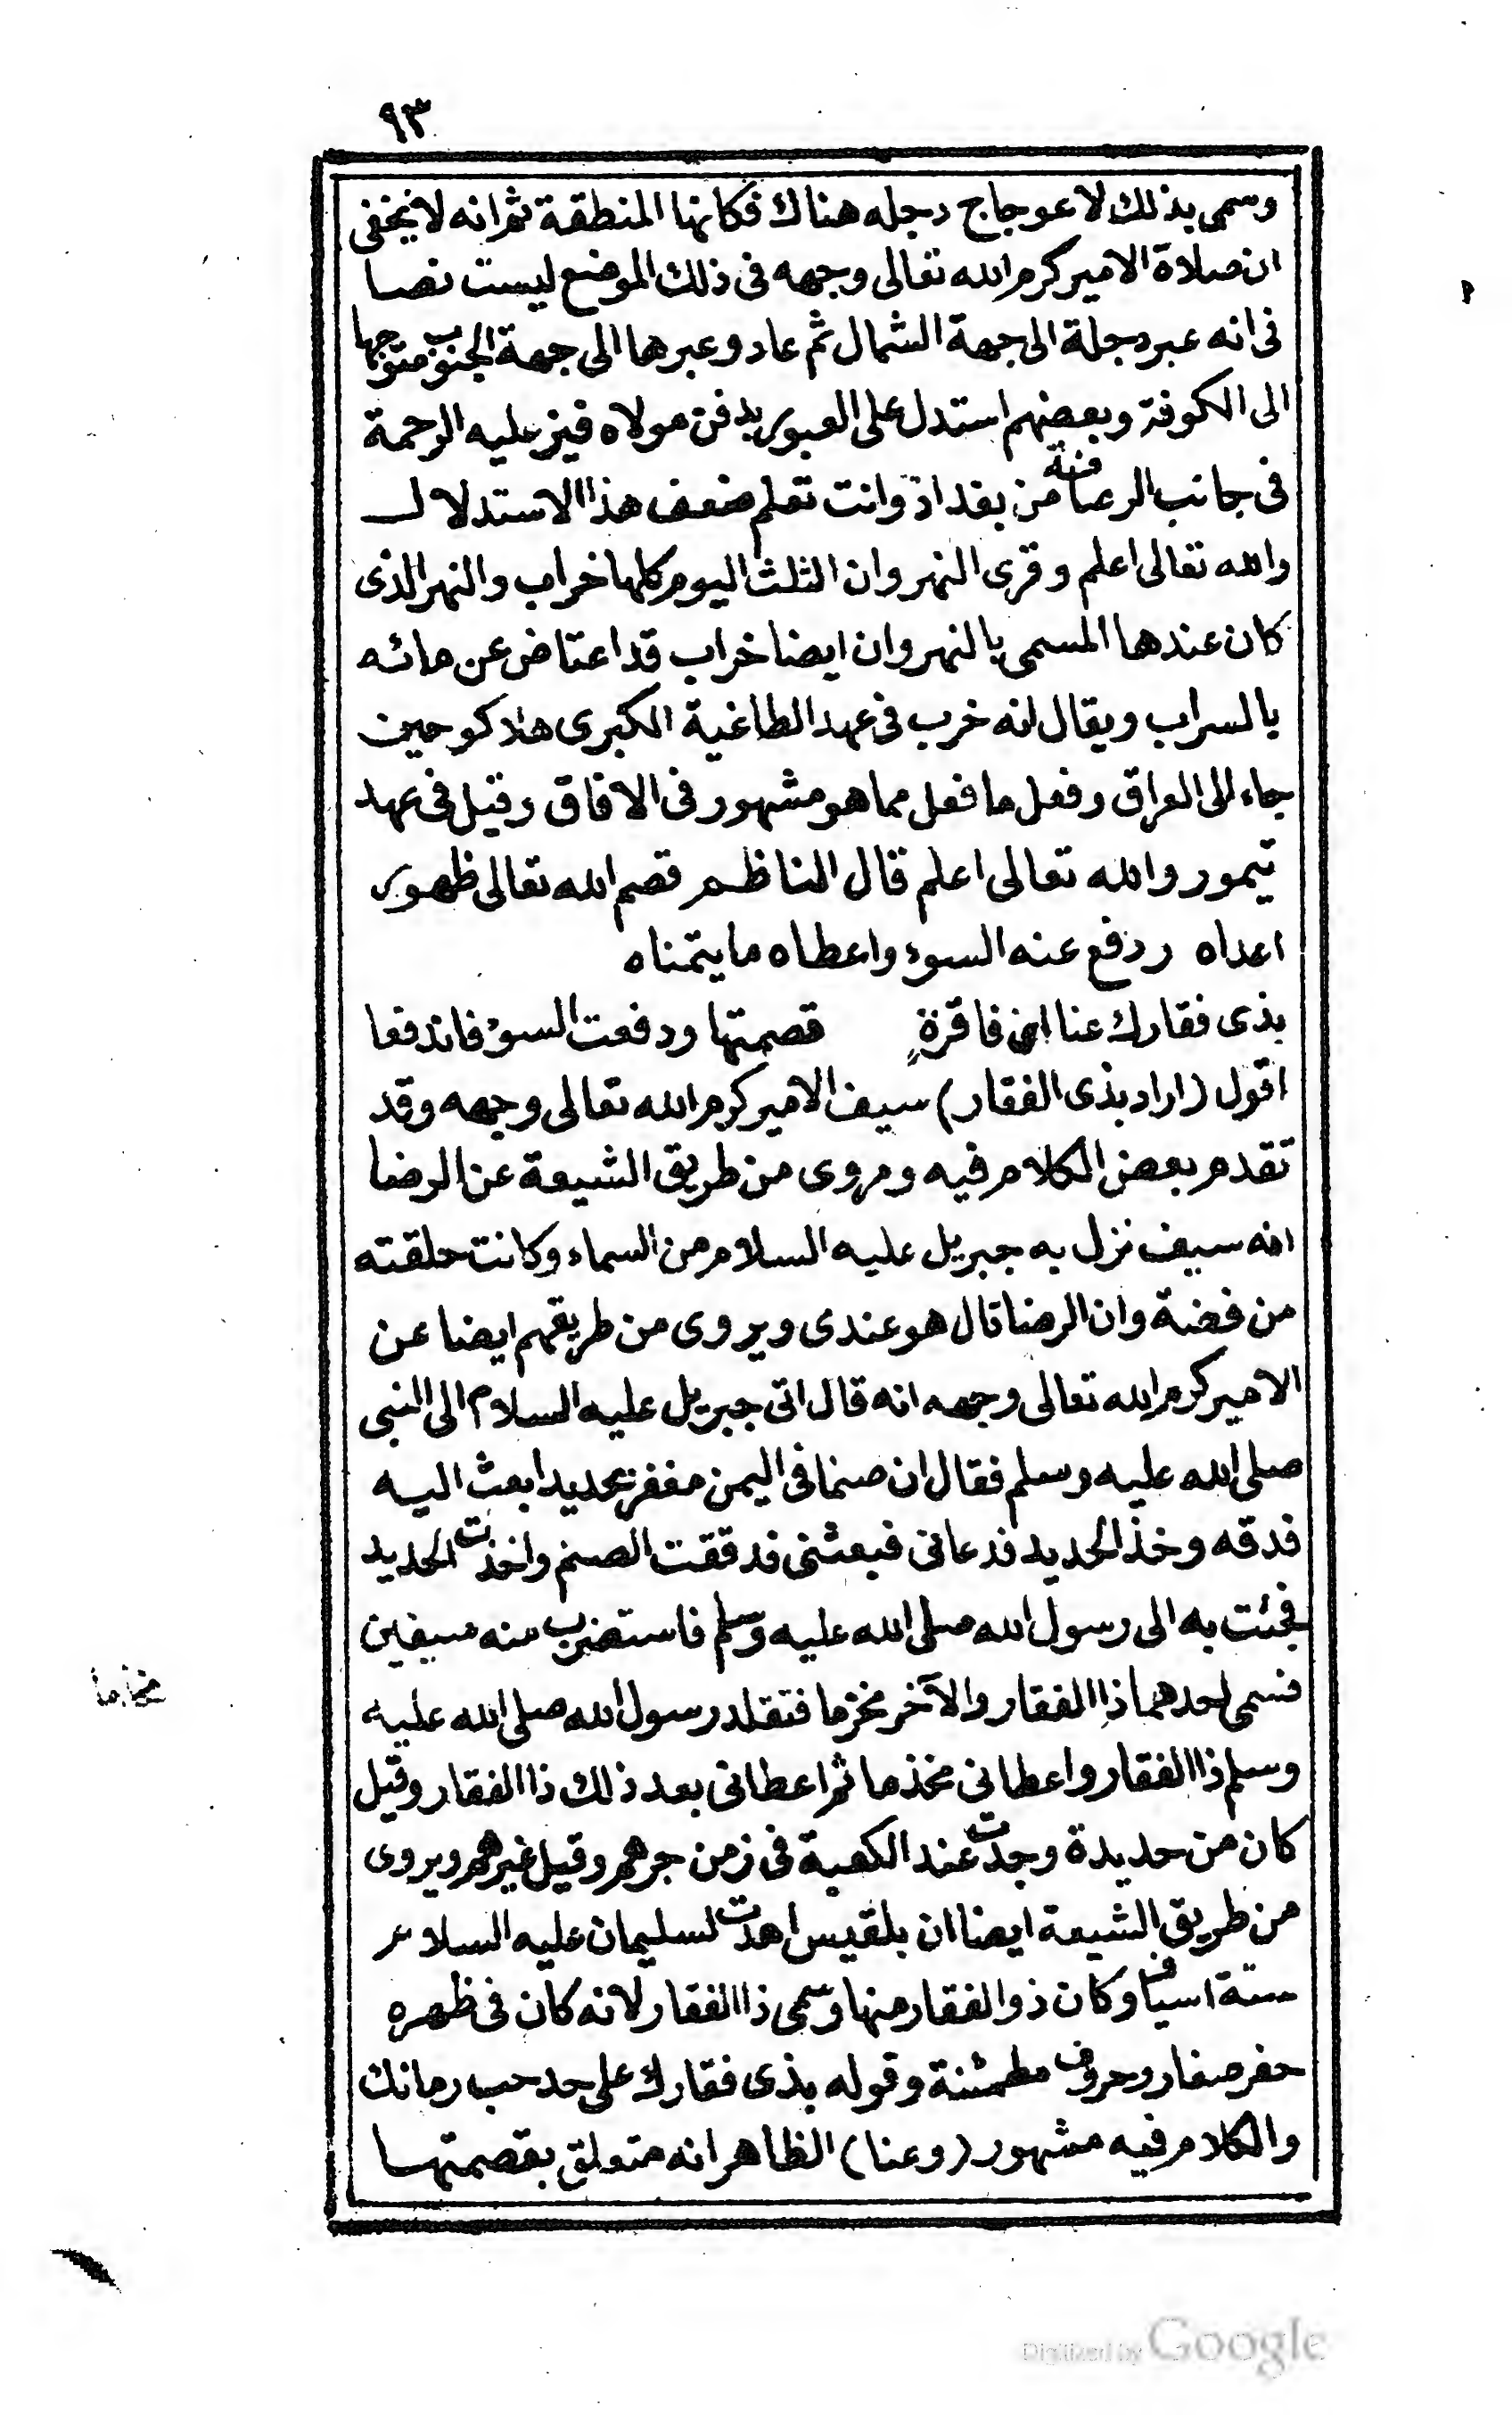 ٩٣
وسمى بذلك لاعوجاج دجله هناك فكانها المنطقة ثم انه لا يخفى
ان صلاة الامير كرم الله تعالى وجهه فى ذلك الموضع ليست نصا
فى انه عبر دجلة الى جهة الشمال ثم عاد وعبرها الى جهة الجنوب متوجها
الى الكوفة وبعضهم استدل على العبور بدفن مولاه قنبر عليه الرحمة
فى جانب الرصافة من بغداد وانت تعلم ضعف هذا الاستدلال
والله تعالى اعلم وقرى النهروان الثلث اليوم كلها خراب والنهر الذى
كان عندها المسمى بالنهروان ايضا خراب قد اعتاض عن مائه
بالسراب ويقال انه خرب فى عهد الطاغية الكبرى هلاكو حين
جاء الى العراق وفعل ما فعل مما هو مشهور فى الافاق وقيل فى عهد
تيمور والله تعالى اعلم قال الناظم قصم الله تعالى ظهور
اعداه ودفع عنه السوء واعطاه ما يتمناه
بذى فقارك عنا اى فاقرة قصمتها ودفعت السوٓ فاندفعا
اقول (اراد بذى الفقار) سيف الامير كرم الله تعالى وجهه وقد
تقدم بعض الكلام فيه وروى من طريق الشيعة عن الرضا
انه سيف نزل به جبريل عليه السلام من السماء وكانت حلقته
من فضة وان الرضا قال هو عندى ويروى من طريقهم ايضا عن
الامير كرم الله تعالى وجهه انه قال اتى جبريل عليه السلام الى النبى
صلى الله عليه وسلم فقال ان صنما فى اليمن مغفر بحديد ابعث اليه
فدقه وخذ الحديد فدعانى فبعثنى فدققت الصنم واخذت الحديد
فجئت به الى رسول الله صلى الله عليه وسلم فاستضرب منه سيفين
فسمى احدهما ذا الفقار والآخر مخزما فتقلد رسول الله صلى الله عليه
مخذما
وسلم ذا الفقار واعطانى مخذما ثم اعطانى بعد ذلك ذا الفقار وقيل
كان من حديدة وجدت عند الكعبة فى زمن جرهم وقيل غيرهم ويروى
من طريق الشيعة ايضا ان بلقيس اهدت لسليمان عليه السلام
ستة اسياف وكان ذو الفقار منها وسمى ذا الفقار لانه كان فى ظهره
حفر صغار وحروف مطمئنة وقوله بذى فقارك على حد حب رمانك
والكلام فيه مشهور (وعنا) الظاهر انه متعلق بقصمتها
Digitized by Google